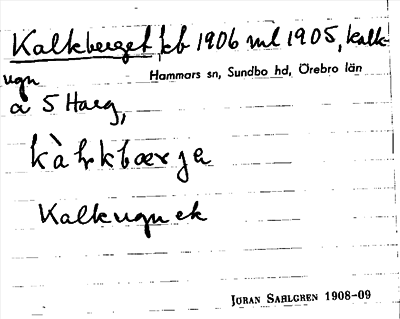 Kalkberget, kb 1906 ml 1905, kalk-
ugn
Hammars sn, Sundbo hd, Örebro län
å 5 Harg,
kàlkbærja
Kalkugn ek
JÖRAN SAHLGREN 1908-09